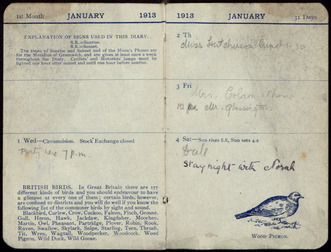 1st Month JANUARY 1913
EXPLANATION OF SIGNS USED IN THIS DIARY.
S.R.=Sunrise.
S.S.=Sunset.
The times of Sunrise and Sunset and of the Moon's Phases are for the Meridian of Greenwich, and are given at least once a week throughout the Diary. Cyclists and Motorists lamps must be lighted one hour after sunset and until one hour before sunrise.
1 Wed—Circumcision. Stock Exchange closed
7 p.m
BRITISH BIRDS. In Great Britain there are 177
different kinds of birds and you should endeavour to have
a glimpse at every one of them; certain birds, however,
are confined to districts and you will do well if you know the
following list of the commoner birds by sight and sound.
Blackbird, Carlew, Crow, Cuckoo, Falcon, Finch, Grouse,
Gull, Heron, Hawk, Jackdaw, Kingfisher, Moorhen,
Martin, Owl, Pheasant, Partridge, Plover, Robin, Rook,
Raven, Swallow, Skylark, Snipe, Starling, Tern, Thrush,
Tit, Wren, Wagtail, Woodpecker, Woodcock, Wood
Pigeon, Wild Duck, Wild Goose.
1913 JANUARY 31 Days
2 Th
Miss
3 Fri
Mrs.
4 Sat—Sun rises 8.8, Sun sets 4.0
Stay night with Norah
WOOD PIGEON.